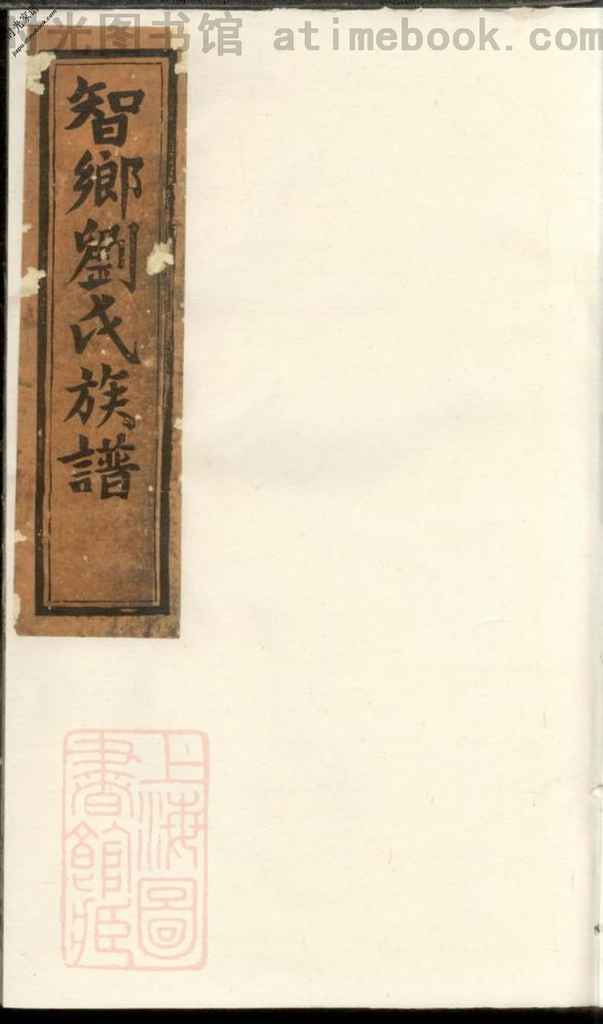 时光图书馆 atimebook.com
智鄉劉氏族譜
上海圖
書館臧